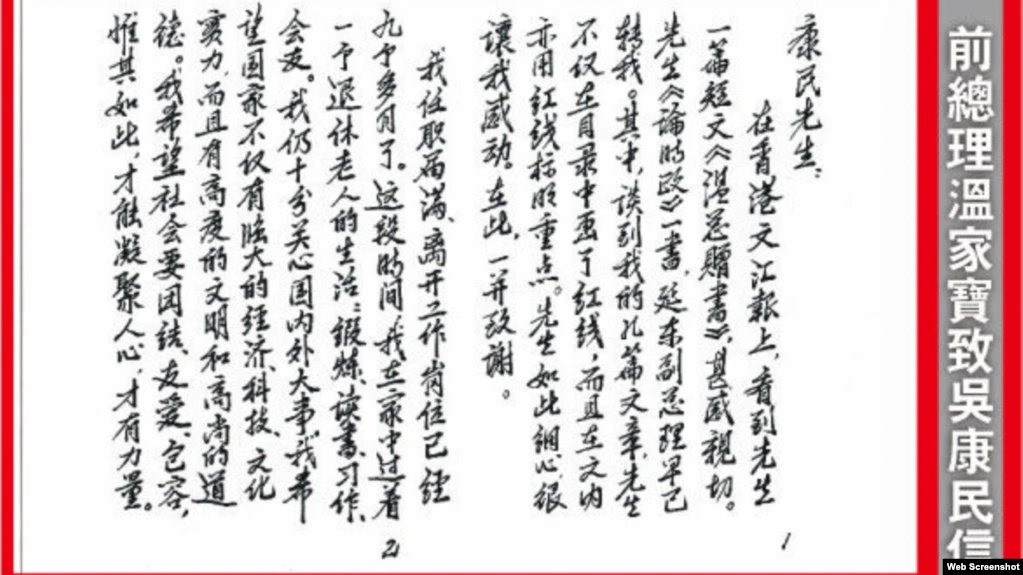 康民先生：
在香港文汇報上，看到先生
一篇短文《温总贈書》，甚感親切。
先生《論時政》一書，延东副总理早已
转我。其中，談到我的几篇文章，先生
不仅在目录中画了红线，而且在文内
亦用红线标明重点。先生如此细心，很
讓我感动。在此，一并致谢。
1
我任职届满、离开工作岗位已经
九个多月了。这段时间，我在家中过着
一个退休老人的生活：锻炼、读書、习作、
会友。我仍十分关心国内外大事，我希
望国家不仅有强大的经济、科技、文化
实力，而且有高度的文明和高尚的道
德。我希望社会要团结、友爱、包容，
惟其如此，才能凝聚人心，才有力量。
2
前總理溫家寶致吳康民信
Web Screenshot